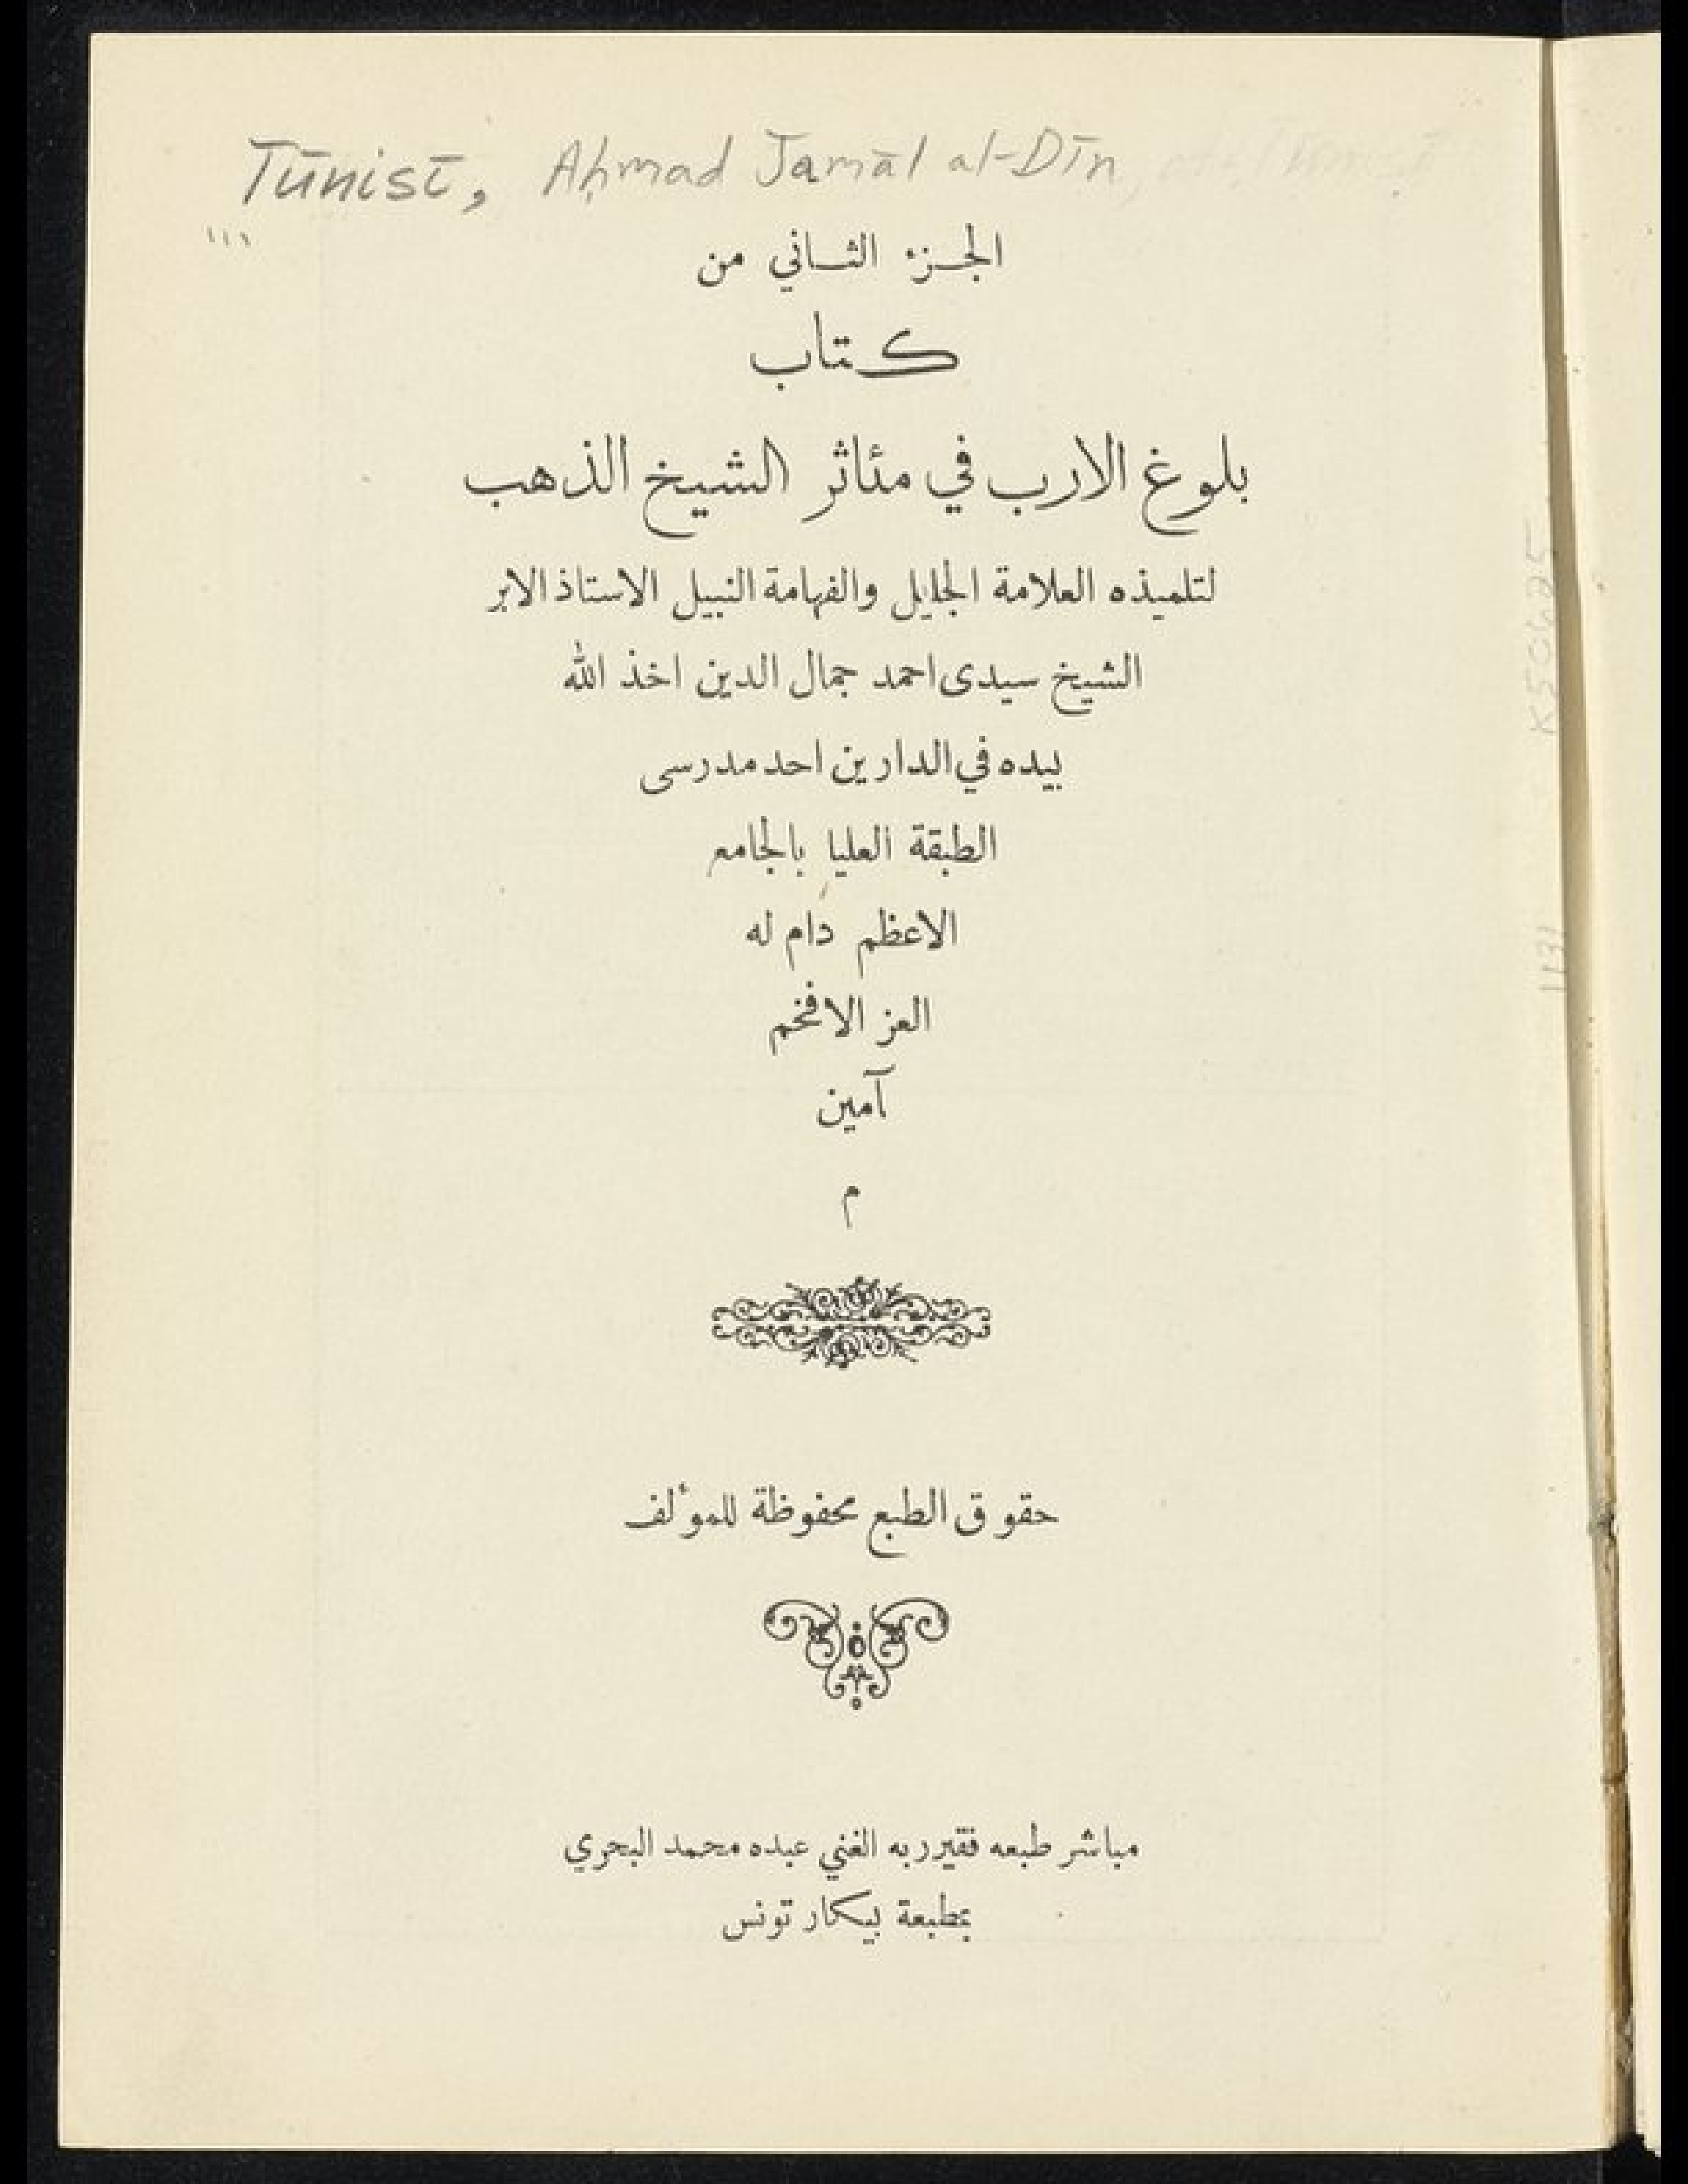 Tūnisī, Aḥmad Jamāl al-Dīn
الجزء الثاني من
كتاب
بلوغ الارب في مئاثر الشيخ الذهب
لتلميذه العلامة الجليل والفهامة النبيل الاستاذ الابر
الشيخ سيدى احمد جمال الدين اخذ الله
بيده في الدارين احد مدرسى
الطبقة العليا بالجامع
الاعظم دام له
العز الافخم
آمين
م
حقوق الطبع محفوظة للموٴلف
مباشر طبعه فقير ربه الغني عبده محمد البحري
بمطبعة بيكار تونس
1131